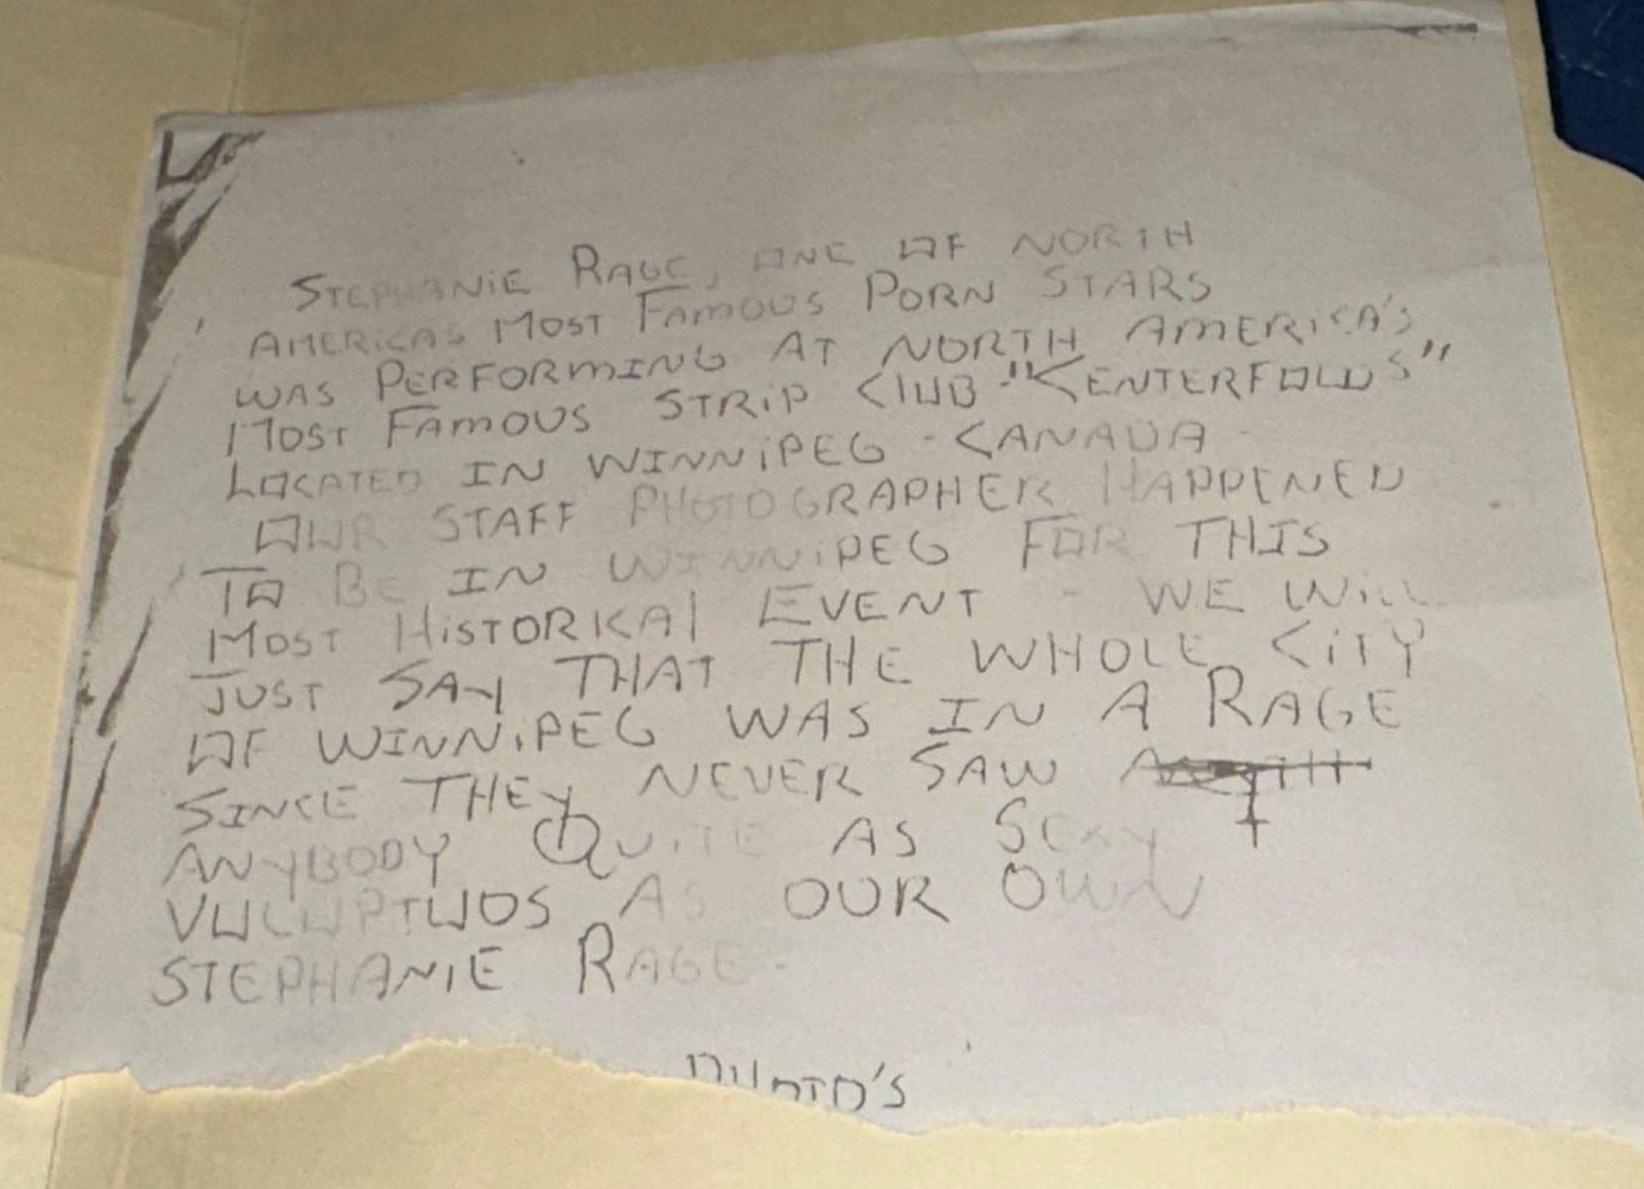 STEPHANIE RAGE, ONE OF NORTH
AMERICAS MOST FAMOUS PORN STARS
WAS PERFORMING AT NORTH AMERICA'S
MOST FAMOUS STRIP CLUB - "CENTERFOLDS"
LOCATED IN WINNIPEG - CANADA -
OUR STAFF PHOTOGRAPHER HAPPENED
TO BE IN WINNIPEG FOR THIS
MOST HISTORICAL EVENT - WE WILL
JUST SAY THAT THE WHOLE CITY
OF WINNIPEG WAS IN A RAGE
SINCE THEY NEVER SAW
ANYBODY QUITE AS SEXY +
VULUPTUOS AS OUR OWN
STEPHANIE RAGE -
PHOTO'S